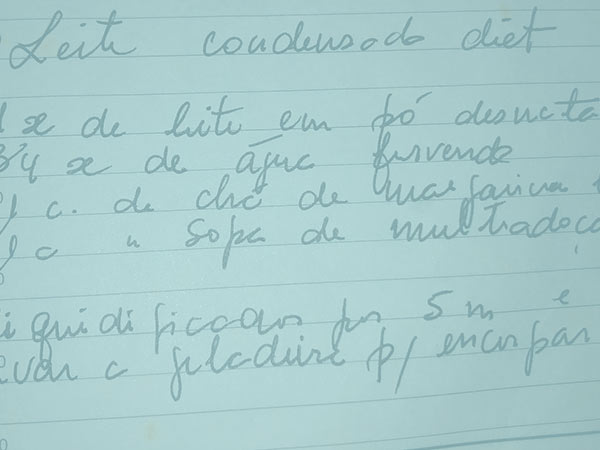 Leite condensado diet
1 x de leite em pó desnata
3/4 x de água fervendo
c. de chá de margarina
c " sopa de multiadoça
iquidificador por 5 m e
evar a geladeira p/ encorpar